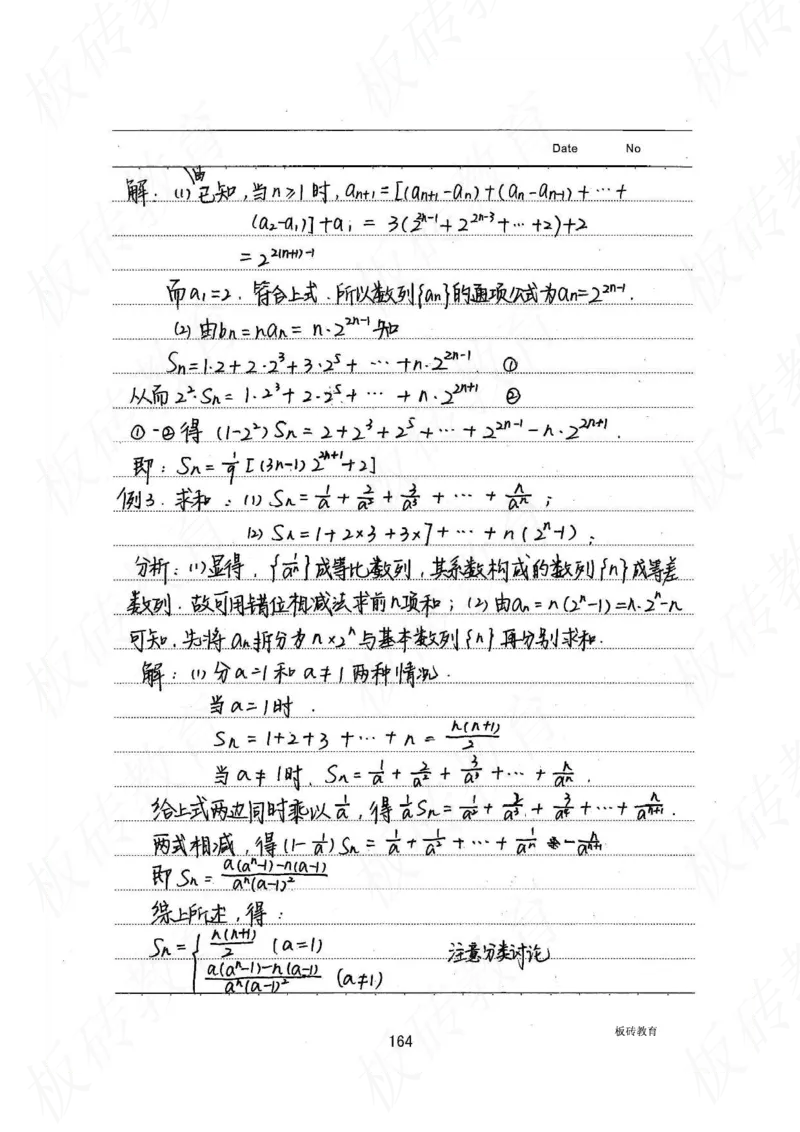 Date No
解：(1)由已知，当n≥1时，aₙ₊₁=[(aₙ₊₁-aₙ)+(aₙ-aₙ₋₁)+…+
(a₂-a₁)]+a₁ = 3(2²ⁿ⁻¹+2²ⁿ⁻³+…+2)+2
= 2²⁽ⁿ⁺¹⁾⁻¹
而a₁=2，符合上式，所以数列{aₙ}的通项公式为aₙ=2²ⁿ⁻¹.
(2)由bₙ=naₙ=n·2²ⁿ⁻¹知
Sₙ=1·2+2·2³+3·2⁵+…+n·2²ⁿ⁻¹ ①
从而2²·Sₙ=1·2³+2·2⁵+…+n·2²ⁿ⁺¹ ②
①-②得 (1-2²)Sₙ=2+2³+2⁵+…+2²ⁿ⁻¹-n·2²ⁿ⁺¹.
即：Sₙ=1/9[(3n-1)2²ⁿ⁺¹+2]
例3. 求和：(1) Sₙ=1/a+2/a²+3/a³+…+n/aⁿ；
(2) Sₙ=1+2×3+3×7+…+n(2ⁿ-1)；
分析：(1)显得，{1/aⁿ}成等比数列，其系数构成的数列{n}成等差
数列，故可用错位相减法求前n项和；(2)由aₙ=n(2ⁿ-1)=n·2ⁿ-n
可知，先将aₙ拆分为n×2ⁿ与基本数列{n}再分别求和.
解：(1)分a=1和a≠1两种情况.
当a=1时.
Sₙ=1+2+3+…+n=n(n+1)/2
当a≠1时、Sₙ=1/a+2/a²+3/a³+…+n/aⁿ.
给上式两边同时乘以1/a，得1/a Sₙ=1/a²+2/a³+3/a⁴+…+n/aⁿ⁺¹.
两式相减，得(1-1/a)Sₙ=1/a+1/a²+…+1/aⁿ-n/aⁿ⁺¹
即Sₙ=a(aⁿ-1)-n(a-1)/aⁿ(a-1)²
综上所述，得：
Sₙ={n(n+1)/2 (a=1)
a(aⁿ-1)-n(a-1)/aⁿ(a-1)² (a≠1)
注意分类讨论
板砖教育
164